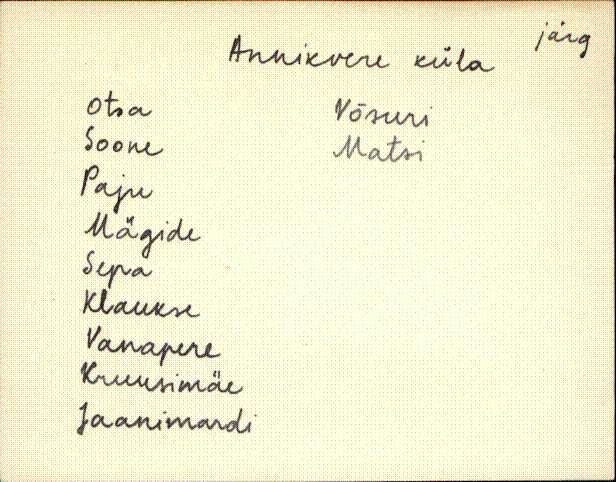 järg
Annikvere küla
Otsa
Soone
Paju
Mägide
Sepa
Klaukse
Vanapere
Kruusimäe
Jaanimardi
Võsuri
Matsi